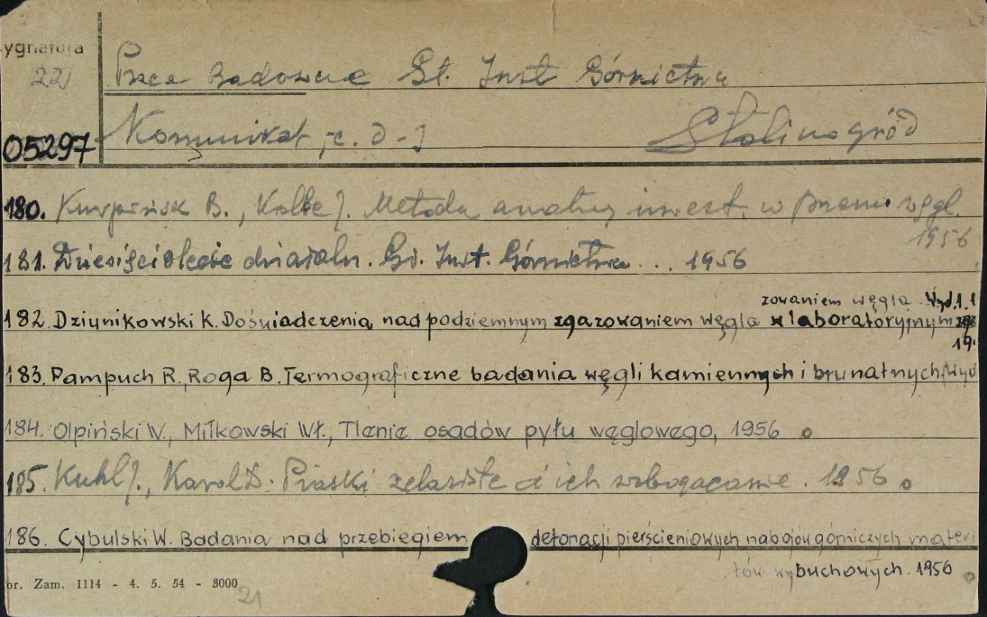 ygnatura
221 Prace Badawcze Gł. Inst Górnictwa
05297 Komunikat, c. d - J Stalinogród
180. B., J. Metoda w węgl.
1956
181. Dziesięciolecie działaln. Gł. Inst. Górnictwa ... 1956
zowaniem węgla. Wyd. 1.1
182. Dziunikowski K. Doświadczenia nad podziemnym zgazowaniem węgla w laboratoryjnym
19.
183. Pampuch R., Roga B. Termograficzne badania węgli kamiennych i brunatnych, Wyd
184. Olpiński W., Miłkowski Wł., Tlenie osadów pyłu węglowego, 1956
185. Kuhl J., Karol Z. Piaski żelaziste i ich wzbogacanie. 1956
186. Cybulski W. Badania nad przebiegiem detonacji pierścieniowych nabojów górniczych materi
łów wybuchowych. 1956
or. Zam. 1114 - 4. 5. 54 - 3000
21